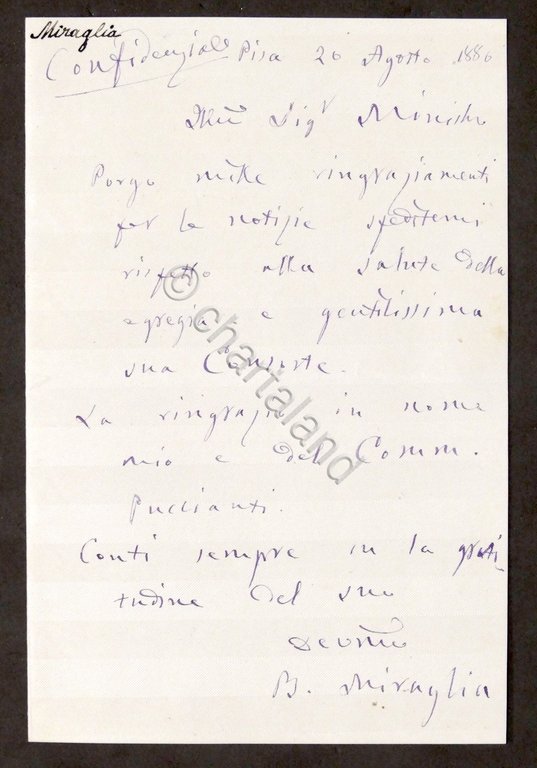 Miraglia
Confidenziale Pisa 26 Agosto 1880
Illmo Sigr Ministro
Porgo mille ringraziamenti
per le notizie speditemi
rispetto alla salute della
egregia e gentilissima
sua Consorte.
La ringrazio in nome
mio e del Comm.
Puccianti.
Conti sempre in la grati-
tudine del suo
Devmo
B. Miraglia
© chartaland